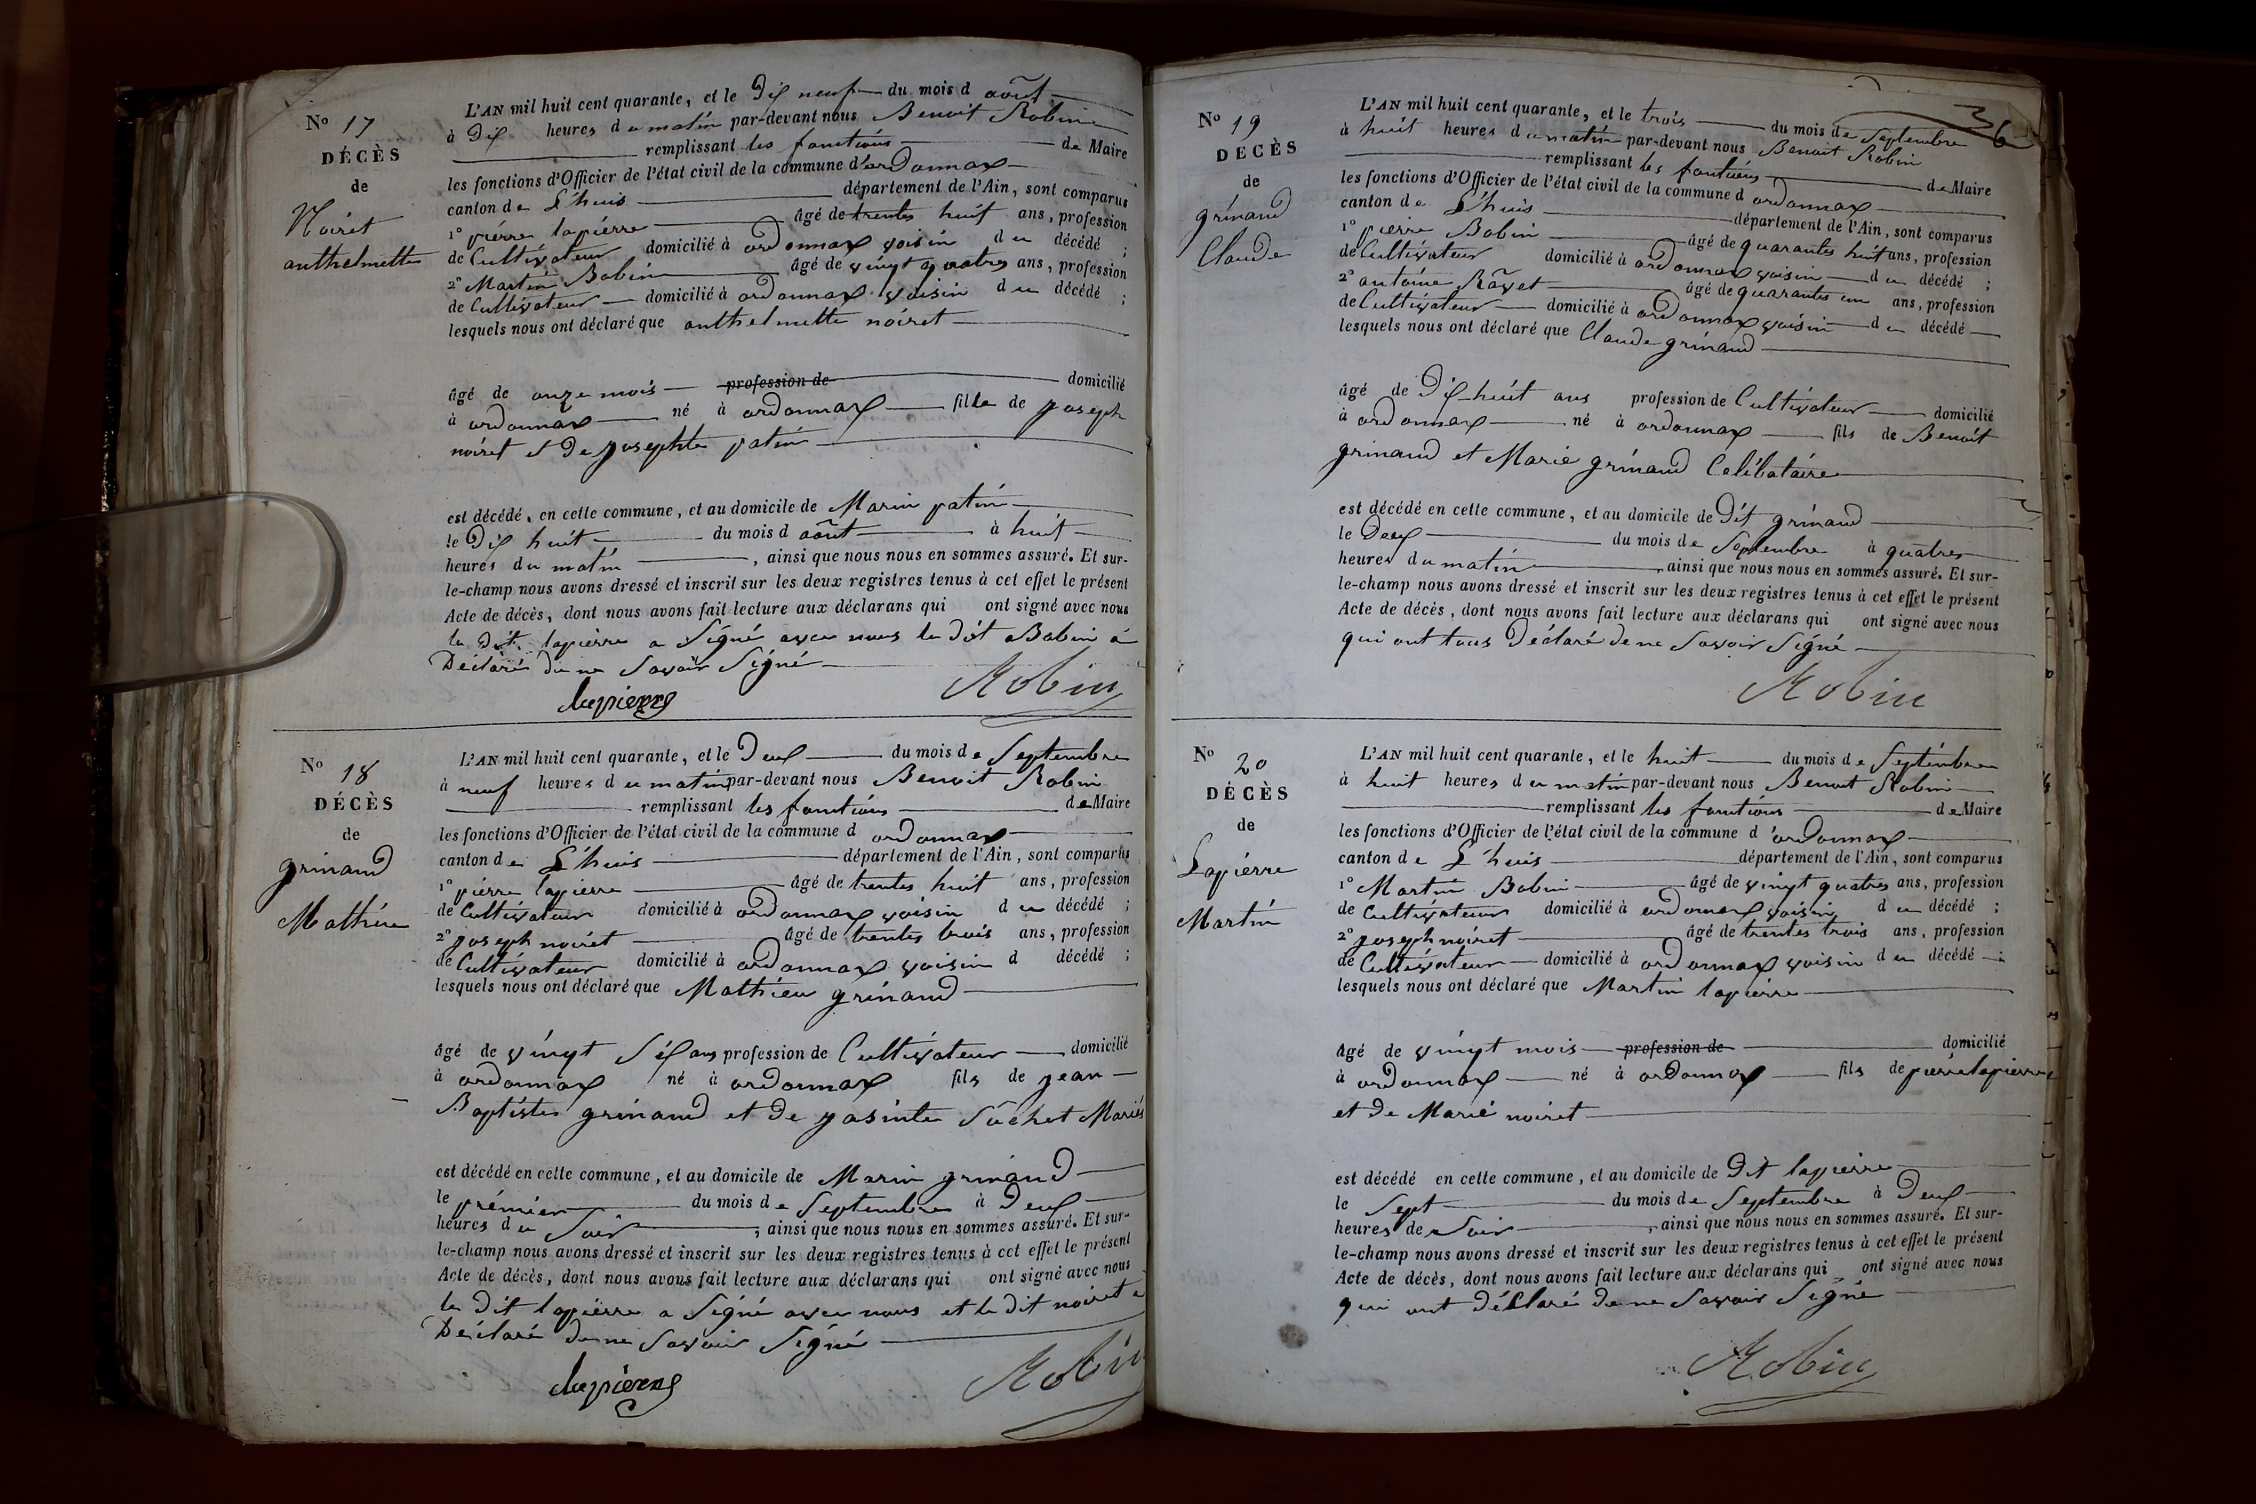 N° 17
DÉCÈS
de
Noiret
anthelmette
L'AN mil huit cent quarante, et le Dix neuf du mois d août
à Dix heures du matin par-devant nous Benoit Robin
remplissant les fonctions de Maire
les fonctions d'Officier de l'état civil de la commune d'ordonnax
canton de L'huis département de l'Ain, sont comparus
1° pierre lapierre âgé de trentes huit ans, profession
de Cultivateur domicilié à ordonnax voisin du décédé ;
2° Martin Babin âgé de vingt quatres ans, profession
de Cultivateur domicilié à ordonnax voisin du décédé ;
lesquels nous ont déclaré que anthelmette noiret
âgé de onze mois profession de domicilié
à ordonnax né à ordonnax fille de joseph
noiret et de josephte patin
est décédé, en cette commune, et au domicile de Marin patin
le Dix huit du mois d août à huit
heures du matin, ainsi que nous nous en sommes assuré. Et sur-
le-champ nous avons dressé et inscrit sur les deux registres tenus à cet effet le présent
Acte de décès, dont nous avons fait lecture aux déclarans qui ont signé avec nous
le Dit lapierre a Signé avec nous le Dit Babin à
Déclaré de ne Savoir Signé
lapierre Robin
N° 18
DÉCÈS
de
grinand
Mathieu
L'AN mil huit cent quarante, et le Deux du mois de Septembre
à neuf heures du matin par-devant nous Benoit Robin
remplissant les fonctions de Maire
les fonctions d'Officier de l'état civil de la commune d ordonnax
canton de L'huis département de l'Ain, sont comparus
1° pierre lapierre âgé de trentes huit ans, profession
de Cultivateur domicilié à ordonnax voisin du décédé ;
2° joseph noiret âgé de trentes trois ans, profession
de Cultivateur domicilié à ordonnax voisin d décédé ;
lesquels nous ont déclaré que Mathieu grinand
âgé de vingt Six ans profession de Cultivateur domicilié
à ordonnax né à ordonnax fils de jean
Baptiste grinand et de jasinte Suchet Mariés
est décédé en cette commune, et au domicile de Marin grinand
le prémier du mois de Septembre à Deux
heures du Soir, ainsi que nous nous en sommes assuré. Et sur-
le-champ nous avons dressé et inscrit sur les deux registres tenus à cet effet le présent
Acte de décès, dont nous avons fait lecture aux déclarans qui ont signé avec nous
le Dit lapierre a Signé avec nous et le dit noiret a
Déclaré de ne Savoir Signé
lapierre Robin
36
N° 19
DÉCÈS
de
grinand
Claude
L'AN mil huit cent quarante, et le trois du mois de Septembre
à huit heures du matin par-devant nous Benoit Robin
remplissant les fonctions de Maire
les fonctions d'Officier de l'état civil de la commune d ordonnax
canton de L'huis département de l'Ain, sont comparus
1° pierre Babin âgé de quarantes huit ans, profession
de Cultivateur domicilié à ordonnax voisin du décédé ;
2° antoine Ravet âgé de quarantes un ans, profession
de Cultivateur domicilié à ordonnax voisin du décédé
lesquels nous ont déclaré que Claude grinand
âgé de Dix huit ans profession de Cultivateur domicilié
à ordonnax né à ordonnax fils de Benoit
grinand et Marie grinand Célibataire
est décédé en cette commune, et au domicile de Dit grinand
le Deux du mois de Septembre à quatres
heures du matin, ainsi que nous nous en sommes assuré. Et sur-
le-champ nous avons dressé et inscrit sur les deux registres tenus à cet effet le présent
Acte de décès, dont nous avons fait lecture aux déclarans qui ont signé avec nous
qui ont tous Déclaré de ne Savoir Signé
Robin
N° 20
DÉCÈS
de
Lapierre
Martin
L'AN mil huit cent quarante, et le huit du mois de Septembre
à huit heures du matin par-devant nous Benoit Robin
remplissant les fonctions de Maire
les fonctions d'Officier de l'état civil de la commune d'ordonnax
canton de L'huis département de l'Ain, sont comparus
1° Martin Babin âgé de vingt quatres ans, profession
de Cultivateur domicilié à ordonnax voisin du décédé ;
2° joseph noiret âgé de trentes trois ans, profession
de Cultivateur domicilié à ordonnax voisin du décédé ;
lesquels nous ont déclaré que Martin lapierre
âgé de vingt mois profession de domicilié
à ordonnax né à ordonnax fils de pierre lapierre
et de Marie noiret
est décédé en cette commune, et au domicile de Dit lapierre
le Sept du mois de Septembre à Deux
heures de Soir, ainsi que nous nous en sommes assuré. Et sur-
le-champ nous avons dressé et inscrit sur les deux registres tenus à cet effet le présent
Acte de décès, dont nous avons fait lecture aux déclarans qui ont signé avec nous
qui ont déclaré de ne Savoir Signé
Robin